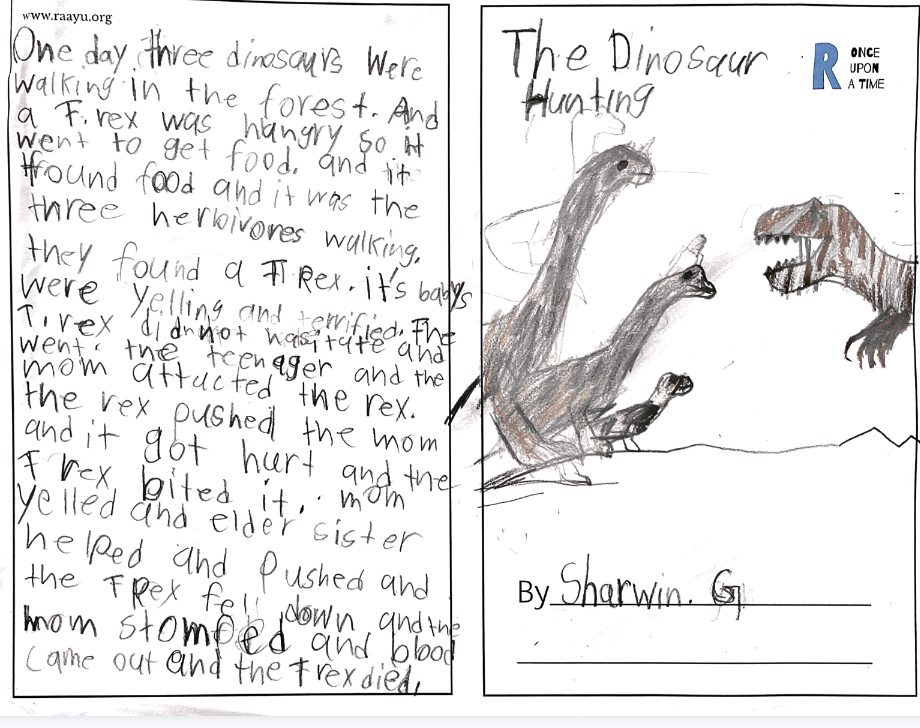 www.raayu.org
One day three dinosaurs were
walking in the forest. And
a T.rex was hangry so it
went to get food. and it
found food and it was the
three herbivores walking.
they found a T Rex. it's babys
were yelling and terrified. The
T.rex did not hasitate and
went. the teenager and the
mom attacted the rex.
the rex pushed the mom
and it got hurt and the
T rex bited it. mom
yelled and elder sister
helped and pushed and
the T Rex fell down and the
mom stomped and blood
came out and the T rex died.
The Dinosaur
Hunting
R ONCE
UPON
A TIME
By Sharwin. G